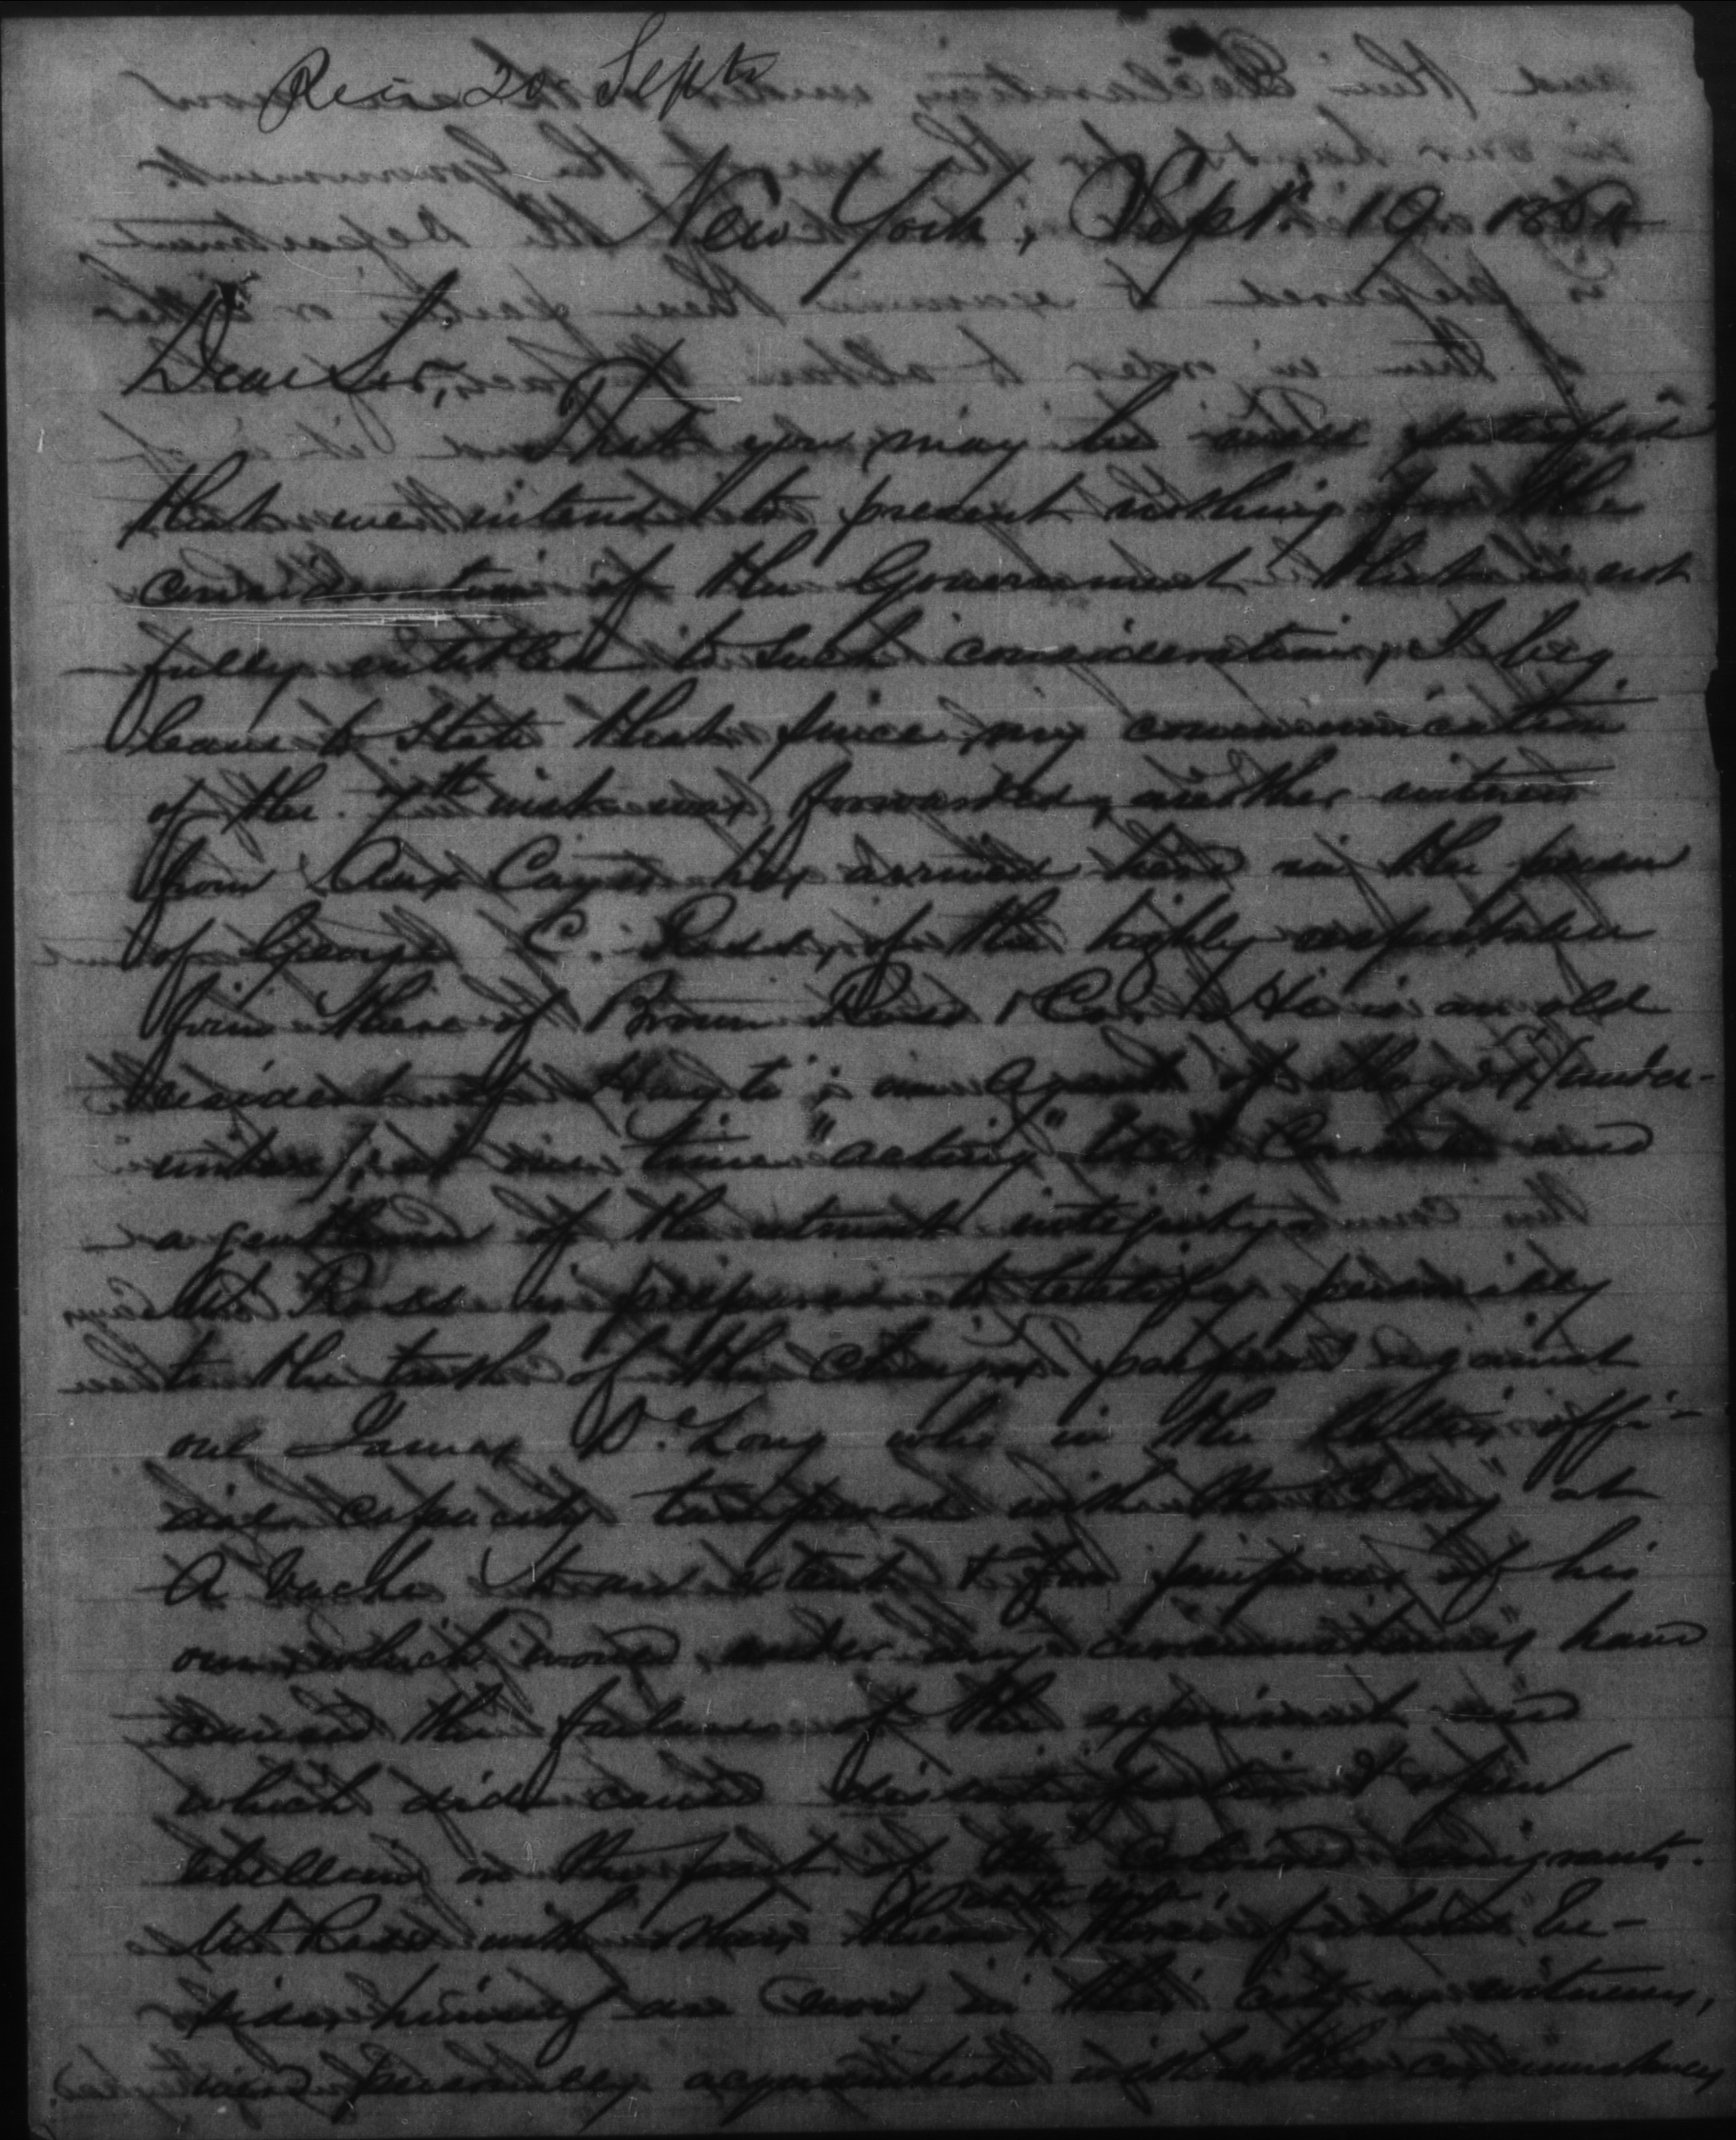 Rec'd 20 Septr
New York, Sept. 19 1864
Dear Sir,
That you may be well satisfied
that we intend to present nothing for the
consideration of the Government that is not
fully entitled to such consideration, I beg
leave to state that since my communication
of the 7th inst. was forwarded, another witness
from Aux Cayes has arrived here in the person
of George C. Ross, of the highly respectable
firm there of Brown Ross & Co. He is an old
resident of Hayti; an agent of the
time "acting" and
a gentleman of the utmost integrity.
Mr Ross is prepared to testify personally
to the truth of the charges against
one James De Long who in the latter's offi-
cial capacity tampered with the "Colony" at
A Vache to an extent & for purposes of his
own which would, under any circumstances, have
caused the failure of the experiment and
which did cause dissatisfaction & open
rebellion on the part of the colored emigrants.
Mr Ross with three be-
sides himself are now in this city as witnesses,
and personally acquainted with the circumstances